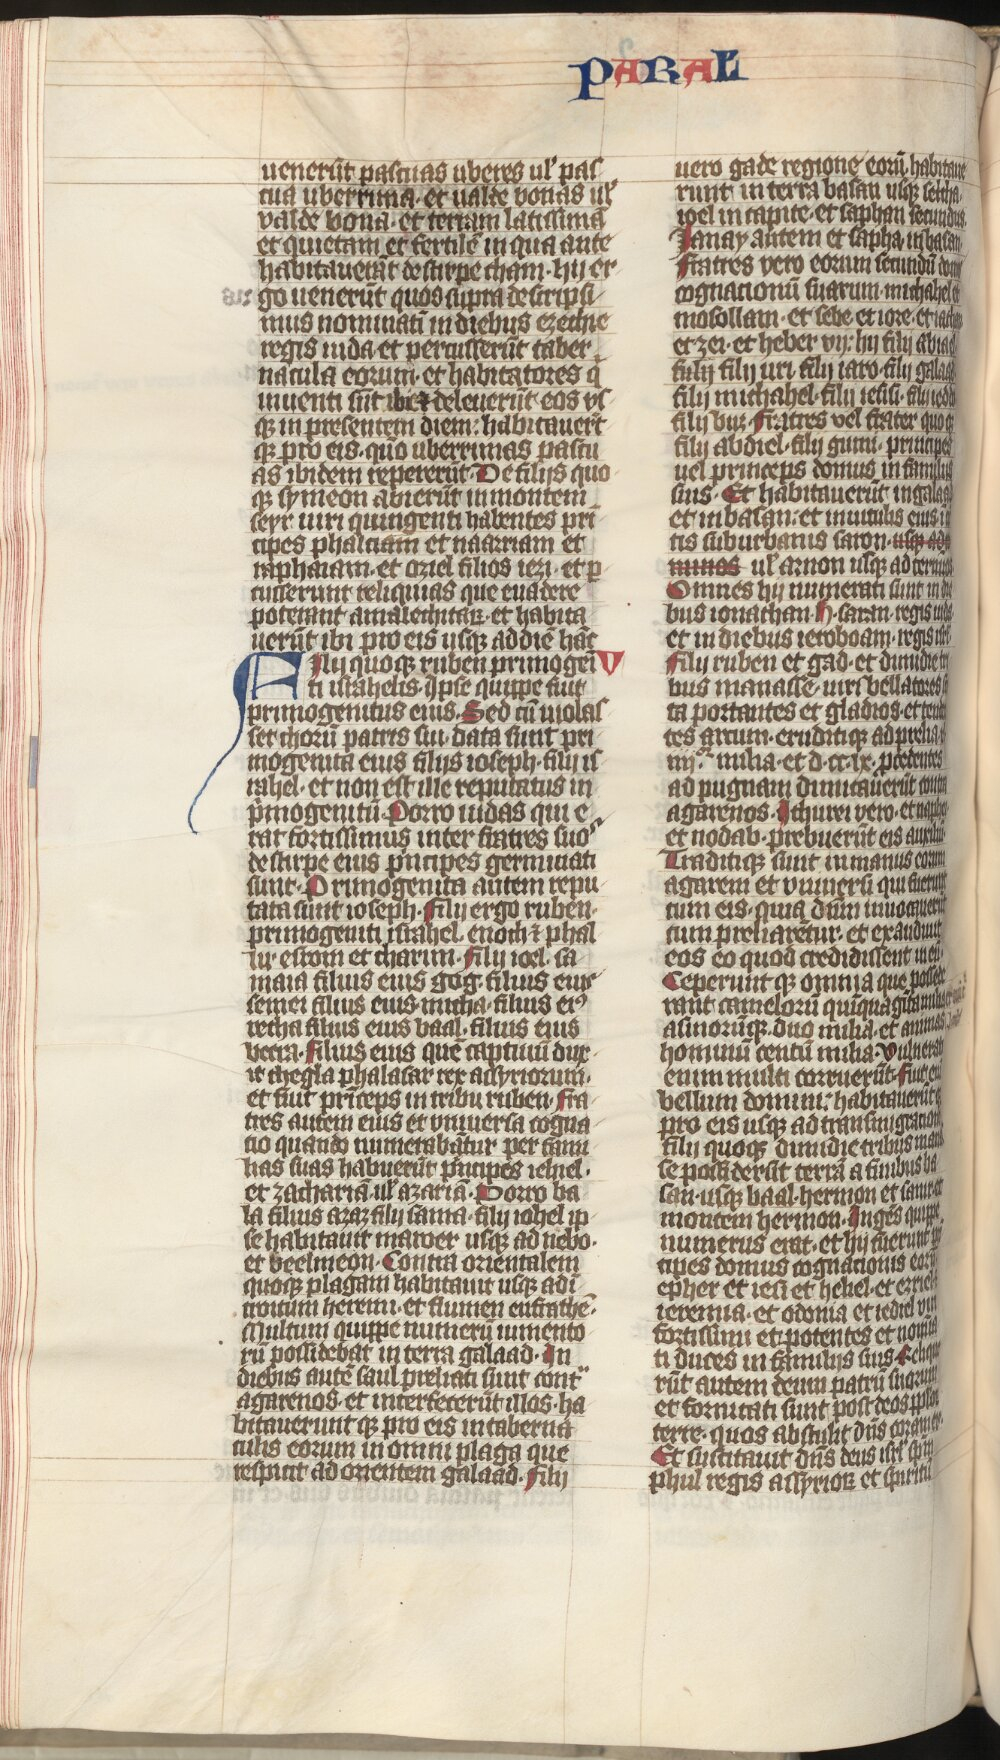 PARAL
uenerūt pascuas uberes ul' pas
cua uberrima · et ualde bonas ul'
valde bona · et terram latissimā
et quietam et fertilē in qua ante
habitauerāt de stirpe cham · hii er
go uenerūt quos supra descripsi
mus nominati in diebus ezechie
regis iuda · et percusserūt taber
nacula eorum · et habitatores q̄
inuenti sūt ibi et deleuerūt eos vs
qꝫ in presentem diem : habitauerūt
qꝫ pro eis · quo uberrimas pascu
as ibidem repererūt · De filijs quo
qꝫ symeon abierūt in montem
seyr uiri quingenti habentes pri
cipes phalciam et naarriam et
raphaiam · et oziel filios iezi · et ꝑ
cusserunt reliquias que euadere
poterant amalechitaꝝ · et habita
uerūt ibi pro eis usqꝫ ad diē hāc
Filij quoqꝫ ruben primogeni V
ti israhelis · Ipse quippe fuit
primogenitus eius · Sed cū uiolas
set thorū patris sui · data sunt pri
mogenita eius filijs ioseph · filij is
rahel · et non est ille reputatus in
p̄mogenitū · Porro iudas qui e
rat fortissimus inter fratres suos
de stirpe eius p̄ncipes germinati
sunt · Primogenita autem repu
tata sunt ioseph · Filij ergo ruben ·
primogeniti israhel · enoch ⁊ phal
lu · esrom et charmi · Filij ioel · sa
maia filius eius gog · filius eius
semei filius eius · micha · filius eiꝰ
recha filius eius baal · filius eius
beera · Filius eius quē captiuū dux
it thegla phalasar rex assyriorum ·
et fuit prīceps in tribu ruben · Fra
tres autem eius et vniuersa cogna
cio quando numerabātur per fami
lias suas habuerūt p̄ncipes iehiel ·
et zachariā ul' azariā · Porro ba
la filius azaz filij sama · filij iohel ip
se habitauit in aroer usqꝫ ad nebo ·
et beelmeon · Contra orientalem
quoqꝫ plagam habitauit usqꝫ ad i
troitum heremi · et flumen eufrathē ·
Multum quippe numerū iumento
rū possidebat in terra galaad · In
diebus autē saul preliati sunt cont
agarenos · et interfecerūt illos · ha
bitauerunt qꝫ pro eis in taberna
culis eorum in omni plaga que
respicit ad orientem galaad · Filij
uero gade regione eorū habitaue
runt in terra basan usqꝫ selcha ·
ioel in capite · et saphan secundus ·
Ianay autem et sapha in basan ·
Fratres vero eorum secundū domꝰ
cognacionū suarum · michahel et
mosollam · et sebe · et iore · et iachan
et zei · et heber vij : hij filij abiael
filij filij uri · filij iaro · filij galaad
filij michahel · filij iesisi · filij iedo
filij buz · Fratres vel frater quoqꝫ
filij abdiel · filij guni · principes
uel princeps domus in familijs
suis · Et habitauerūt in galaad
et in basan : et in uiculis eius · i cū
tis suburbanis saron · usqꝫ ad t
minos ul' arnon usqꝫ ad terminos
Omnes hij numerati sunt in die
bus ionathan · H · saran · regis iuda
et in diebus ieroboam · regis isrl'
Filij ruben et gad · et dimidie tri
bus manasse · uiri bellatores s
ta portantes et gladios · et tendē
tes arcum · eruditiqꝫ ad prelia ·
iiii milia · et d · cc · lx · p̄cedentes
ad pugnam dimicauerūt contra
agarenos · Ithurei vero · et naphei
et nodab · prebuerūt eis auxiliū
Traditiqꝫ sunt in manus eorum
agareni et vniuersi qui fuerunt
cum eis · quia dn̄m inuocauerūt
cum preliarētur · et exaudiuit
eos eo quod credidissent in eū ·
Ceperunt qꝫ omnia que posse
rant camelorū quīquagīta milia
asinorūqꝫ · duo milia · et animas
hominū centū milia · Vulnerati
enim multi corruerūt · Fuit enī
bellum domini : habitauerūt qꝫ
pro eis usqꝫ ad transmigracionē ·
filij quoqꝫ dimidie tribus manas
se possiderūt terrā a finibus ba
san · usqꝫ baal · hermon et sanir · et
montem hermon · Ingēs quippe
numerus erat · et hij fuerunt pri
cipes domus cognacionis eorū
epher et iesi et heliel · et ezriel
ieremia · et odonia et iediel viri
fortissimi et potentes et nomina
ti duces in familijs suis · Reliqꝫ
rūt autem deum patrū suorum
et fornicati sunt post deos pplorū
terre · quos abstulit dn̄s coram eis
Et suscitauit dn̄s deus isrl' spm
phul regis assyrioꝝ et spiritū